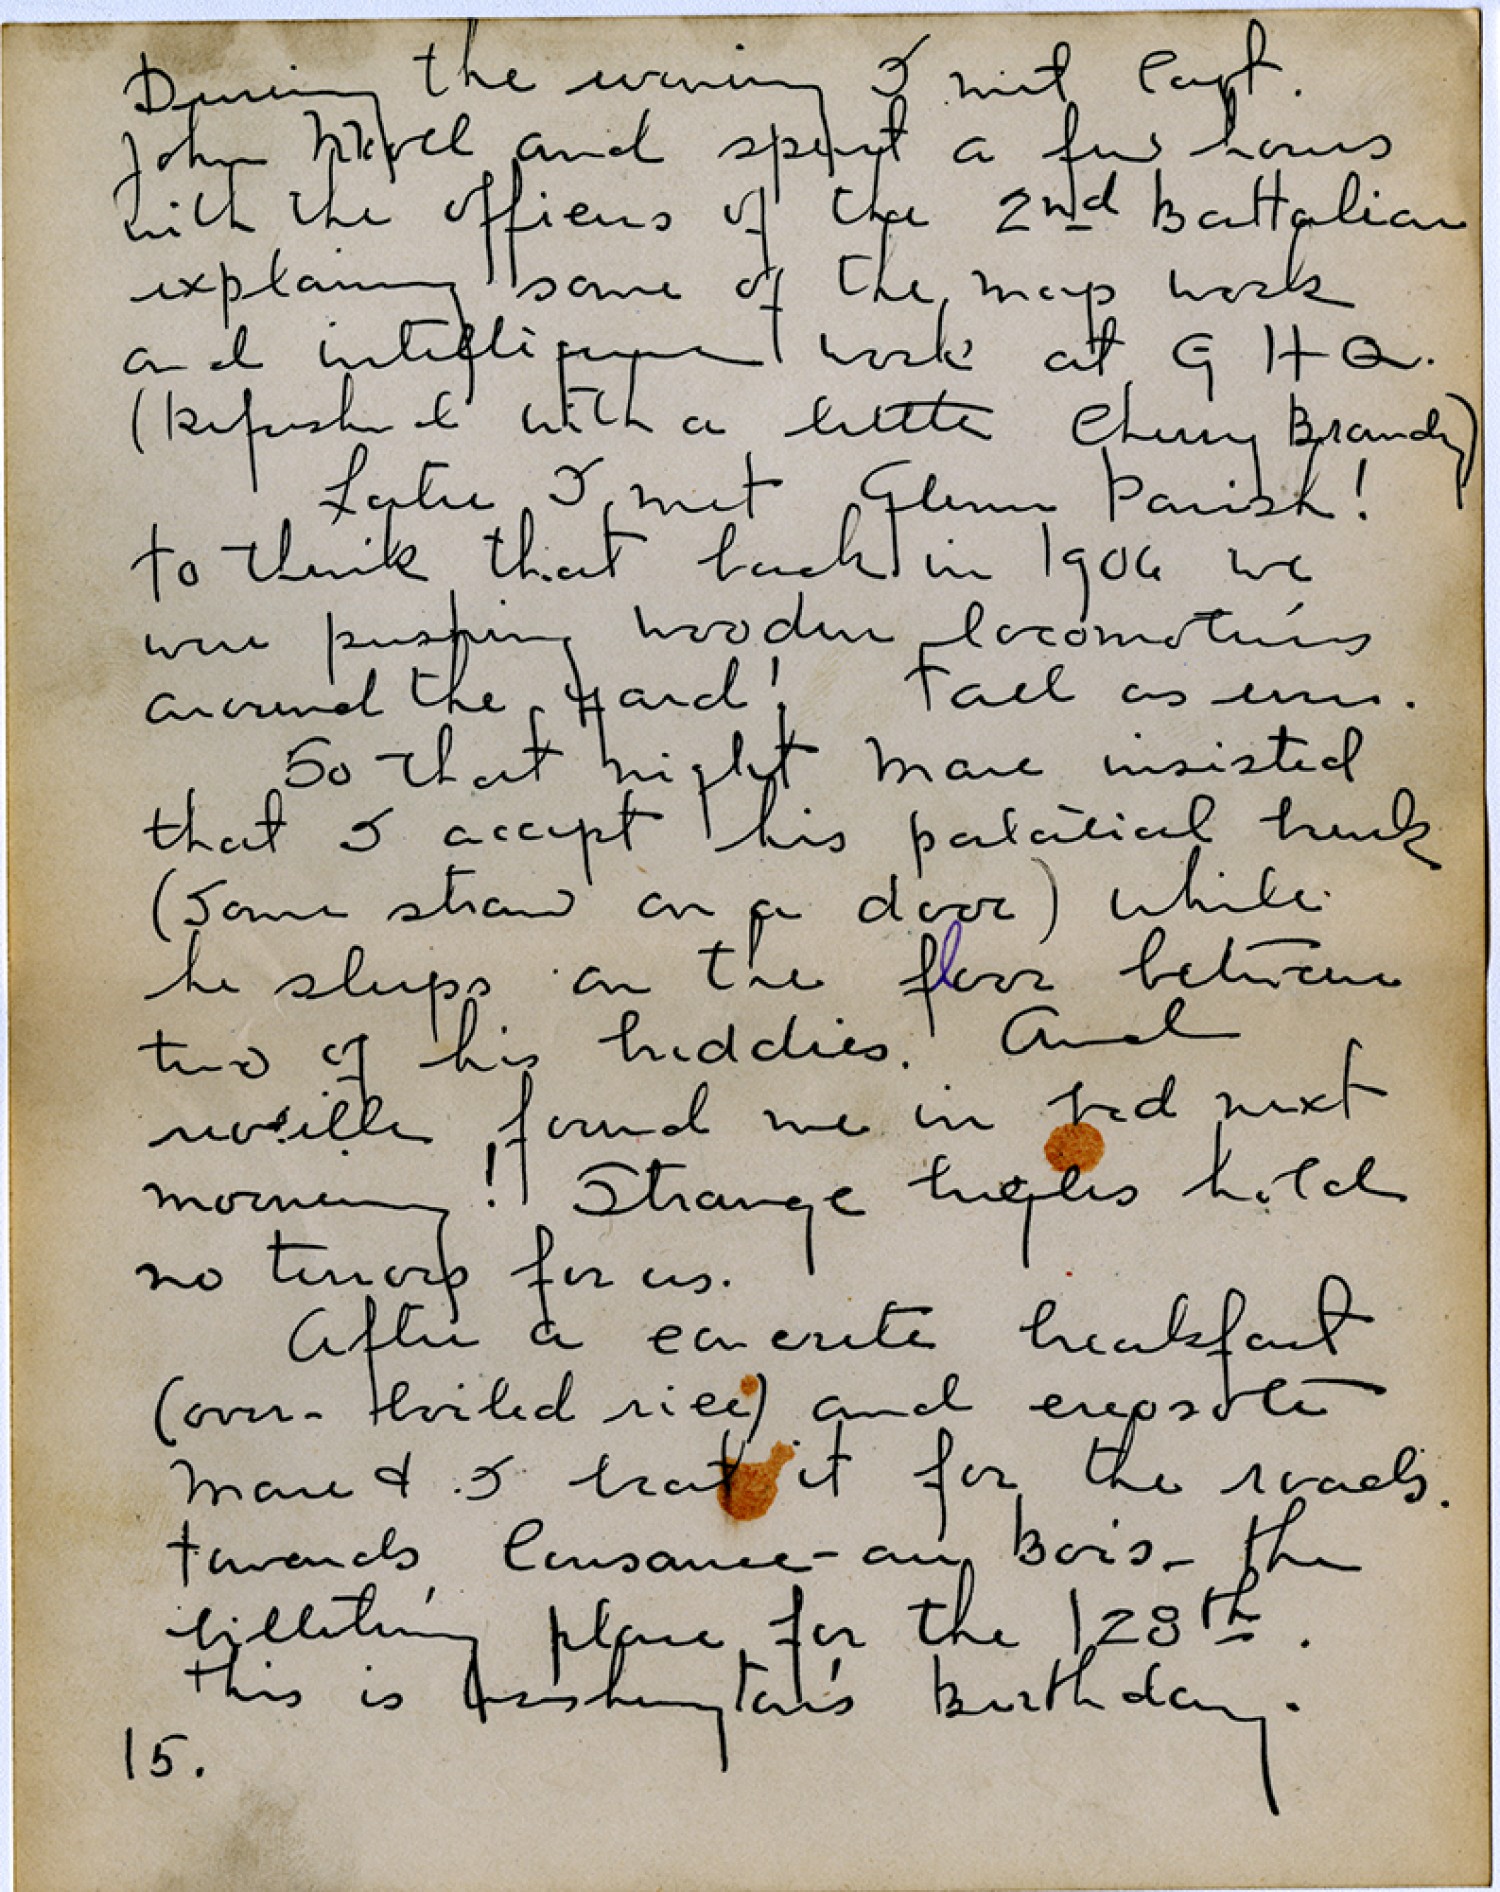 During the evening I met Capt.
John and spent a few hours
with the officers of the 2nd Battalion
explaining some of the map work
and intelligence work at G H Q.
(Refreshed with a little Cherry Brandy)
Later I met Glenn Parish!
to think that back in 1906 we
were pushing wooden locomotives
around the yard! Tall as ever.
So that night insisted
that I accept his palatial bunk
(Some straw on a door) while
he sleeps on the floor between
two of his buddies. And
reveille found me in bed next
morning! Strange bugles hold
no terrors for us.
After a concrete breakfast
(over-boiled rice) and creosote
& I beat it for the roads
towards Cousance-au Bois- the
billeting place for the 128th.
This is Washington's Birthday.
15.